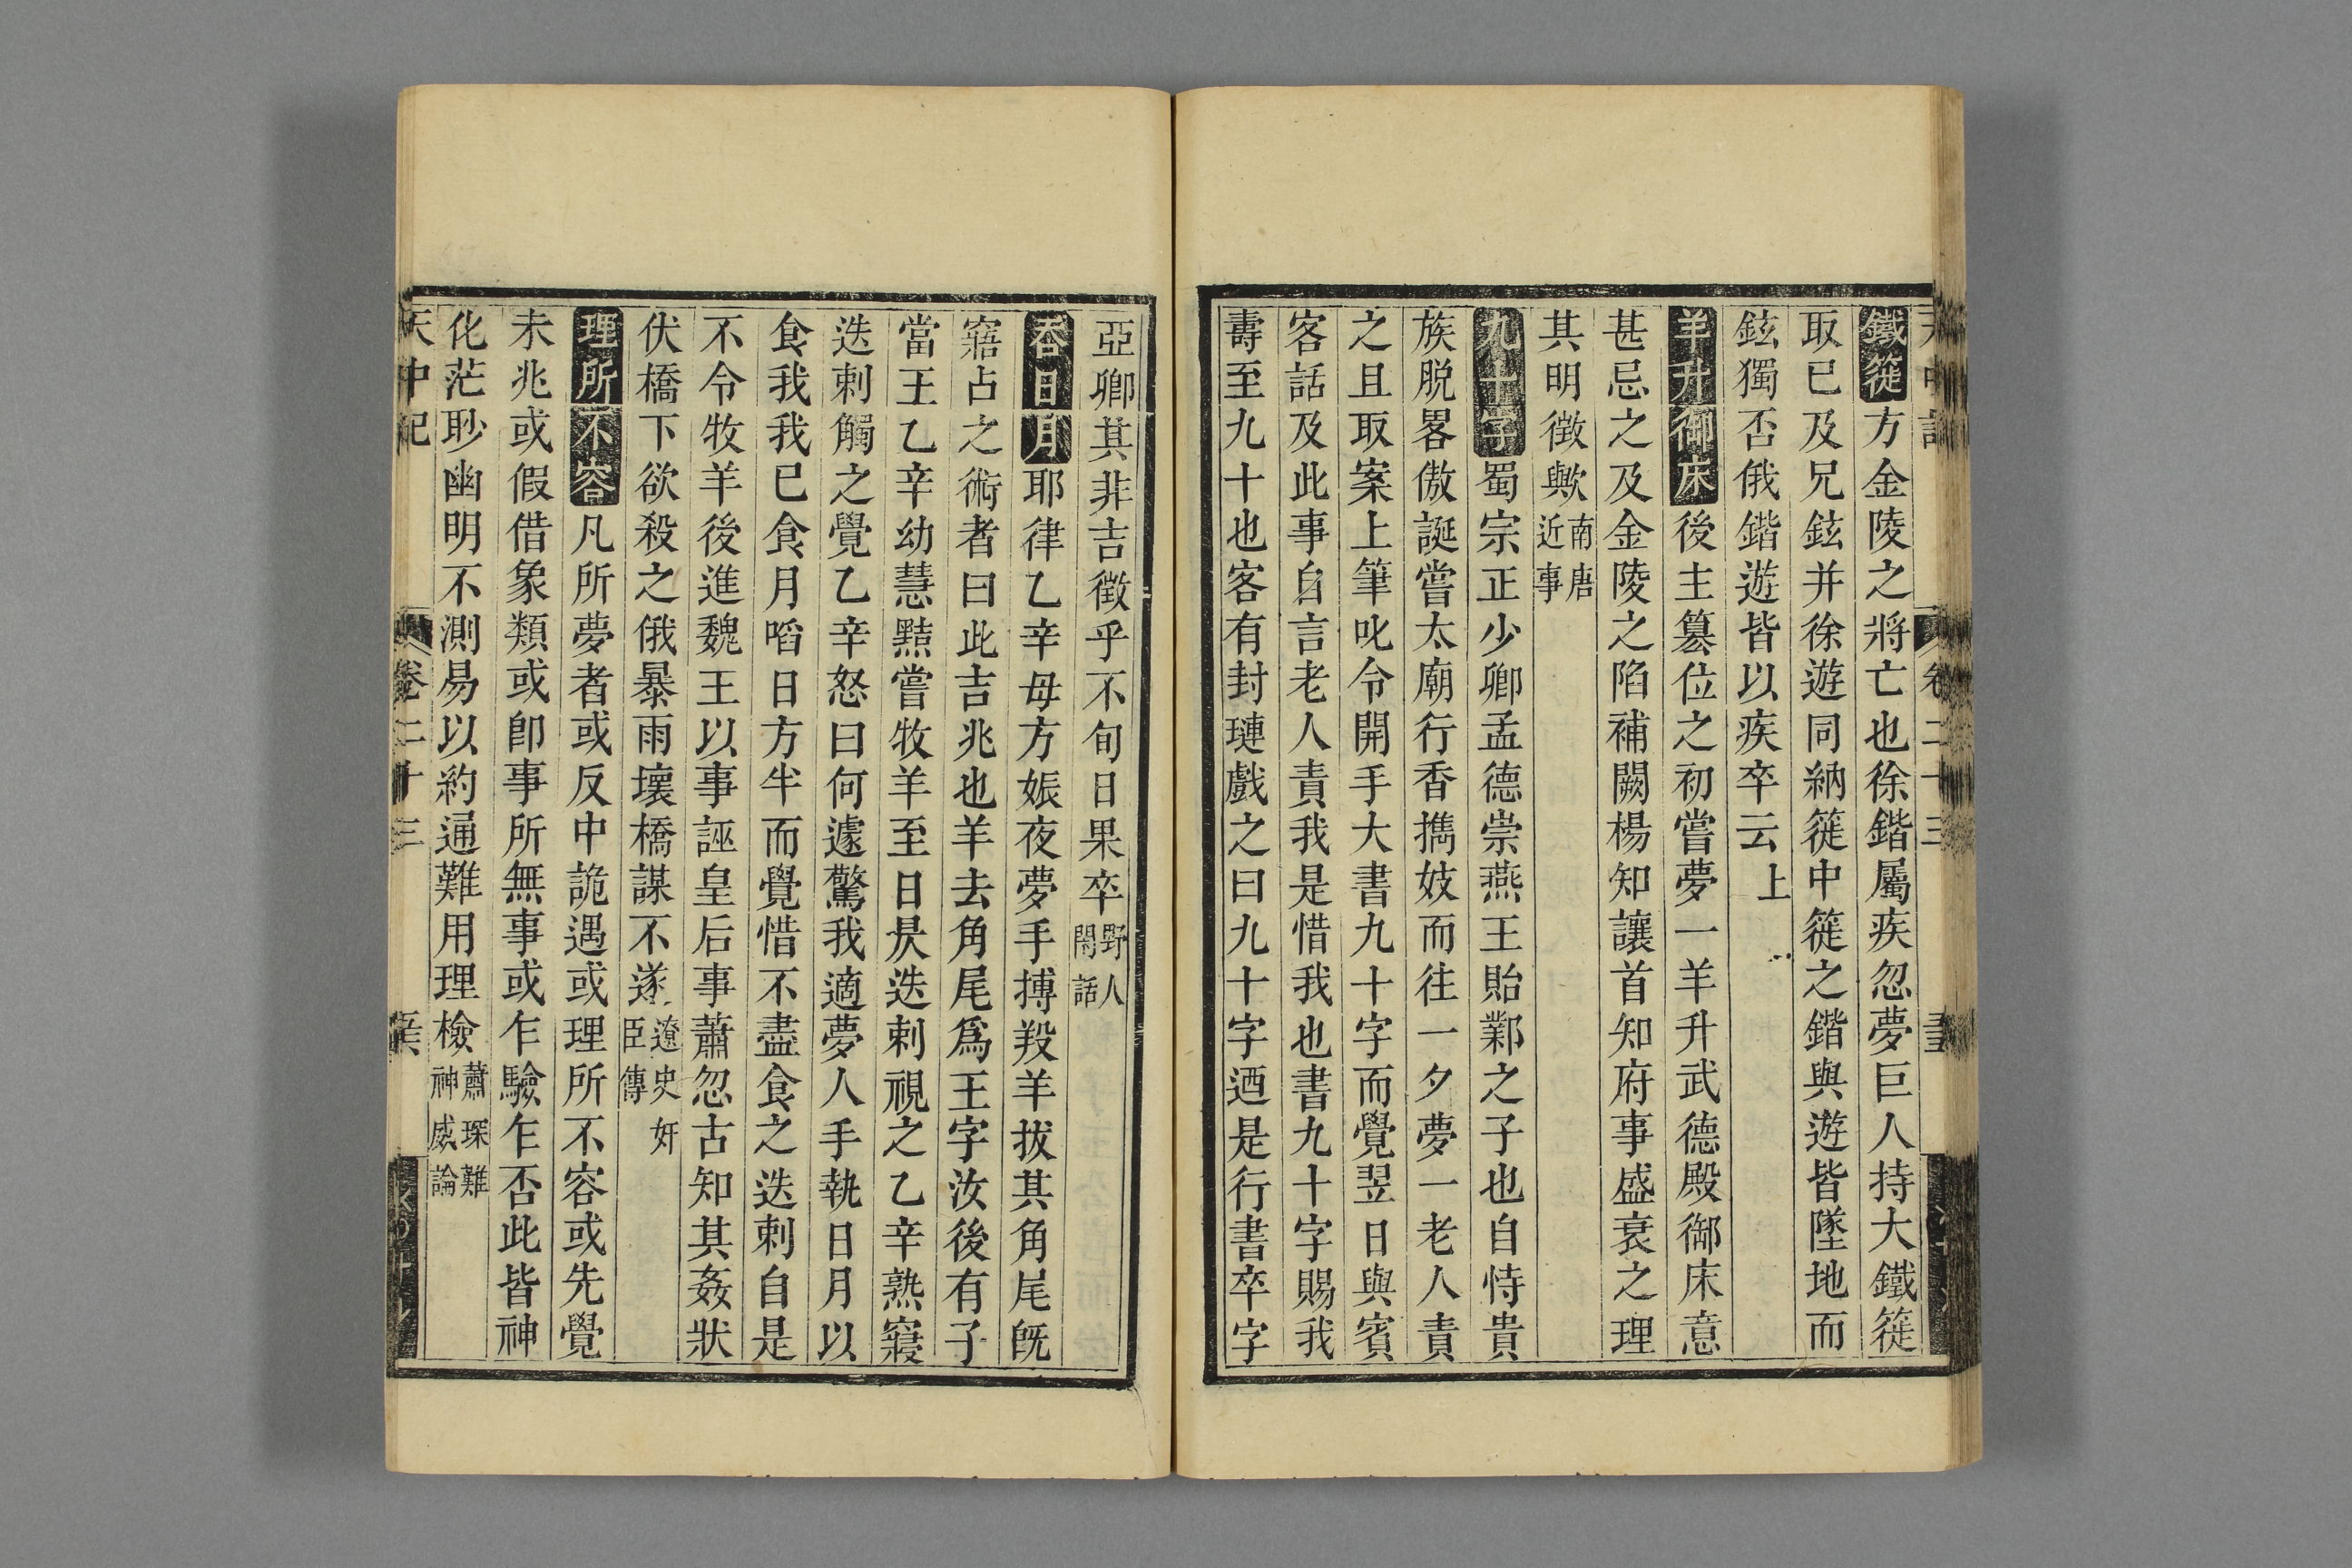 鐵簁方金陵之將亡也徐鍇屬疾忽夢巨人持大鐵簁
取已及兄鉉并徐遊同納簁中簁之鍇與遊皆墜地而
鉉獨否俄鍇遊皆以疾卒云上
羊升御床後主簒位之初嘗夢一羊升武德殿御床意
甚忌之及金陵之陷補闕楊知讓首知府事盛衰之理
其明徵歟南唐近事
九十字蜀宗正少卿孟德崇燕王貽鄴之子也自恃貴
族脫畧傲誕嘗太廟行香擕妓而往一夕夢一老人責
之且取案上筆叱令開手大書九十字而覺翌日與賓
客話及此事自言老人責我是惜我也書九十字賜我
壽至九十也客有封璉戲之曰九十字迺是行書卒字
亞卿其非吉徵乎不旬日果卒野人閒話
吞日月耶律乙辛母方娠夜夢手搏羖羊拔其角尾旣
寤占之術者曰此吉兆也羊去角尾爲王字汝後有子
當王乙辛幼慧黠嘗牧羊至日昃迭剌視之乙辛熟寢
迭剌觸之覺乙辛怒曰何遽驚我適夢人手執日月以
食我我已食月啗日方半而覺惜不盡食之迭剌自是
不令牧羊後進魏王以事誣皇后事蕭忽古知其姦狀
伏橋下欲殺之俄暴雨壞橋謀不遂遼史奸臣傳
理所不容凡所夢者或反中詭遇或理所不容或先覺
未兆或假借象類或卽事所無事或乍驗乍否此皆神
化茫眇幽明不測易以約通難用理檢蕭琛難神威論
天中記
卷二十三